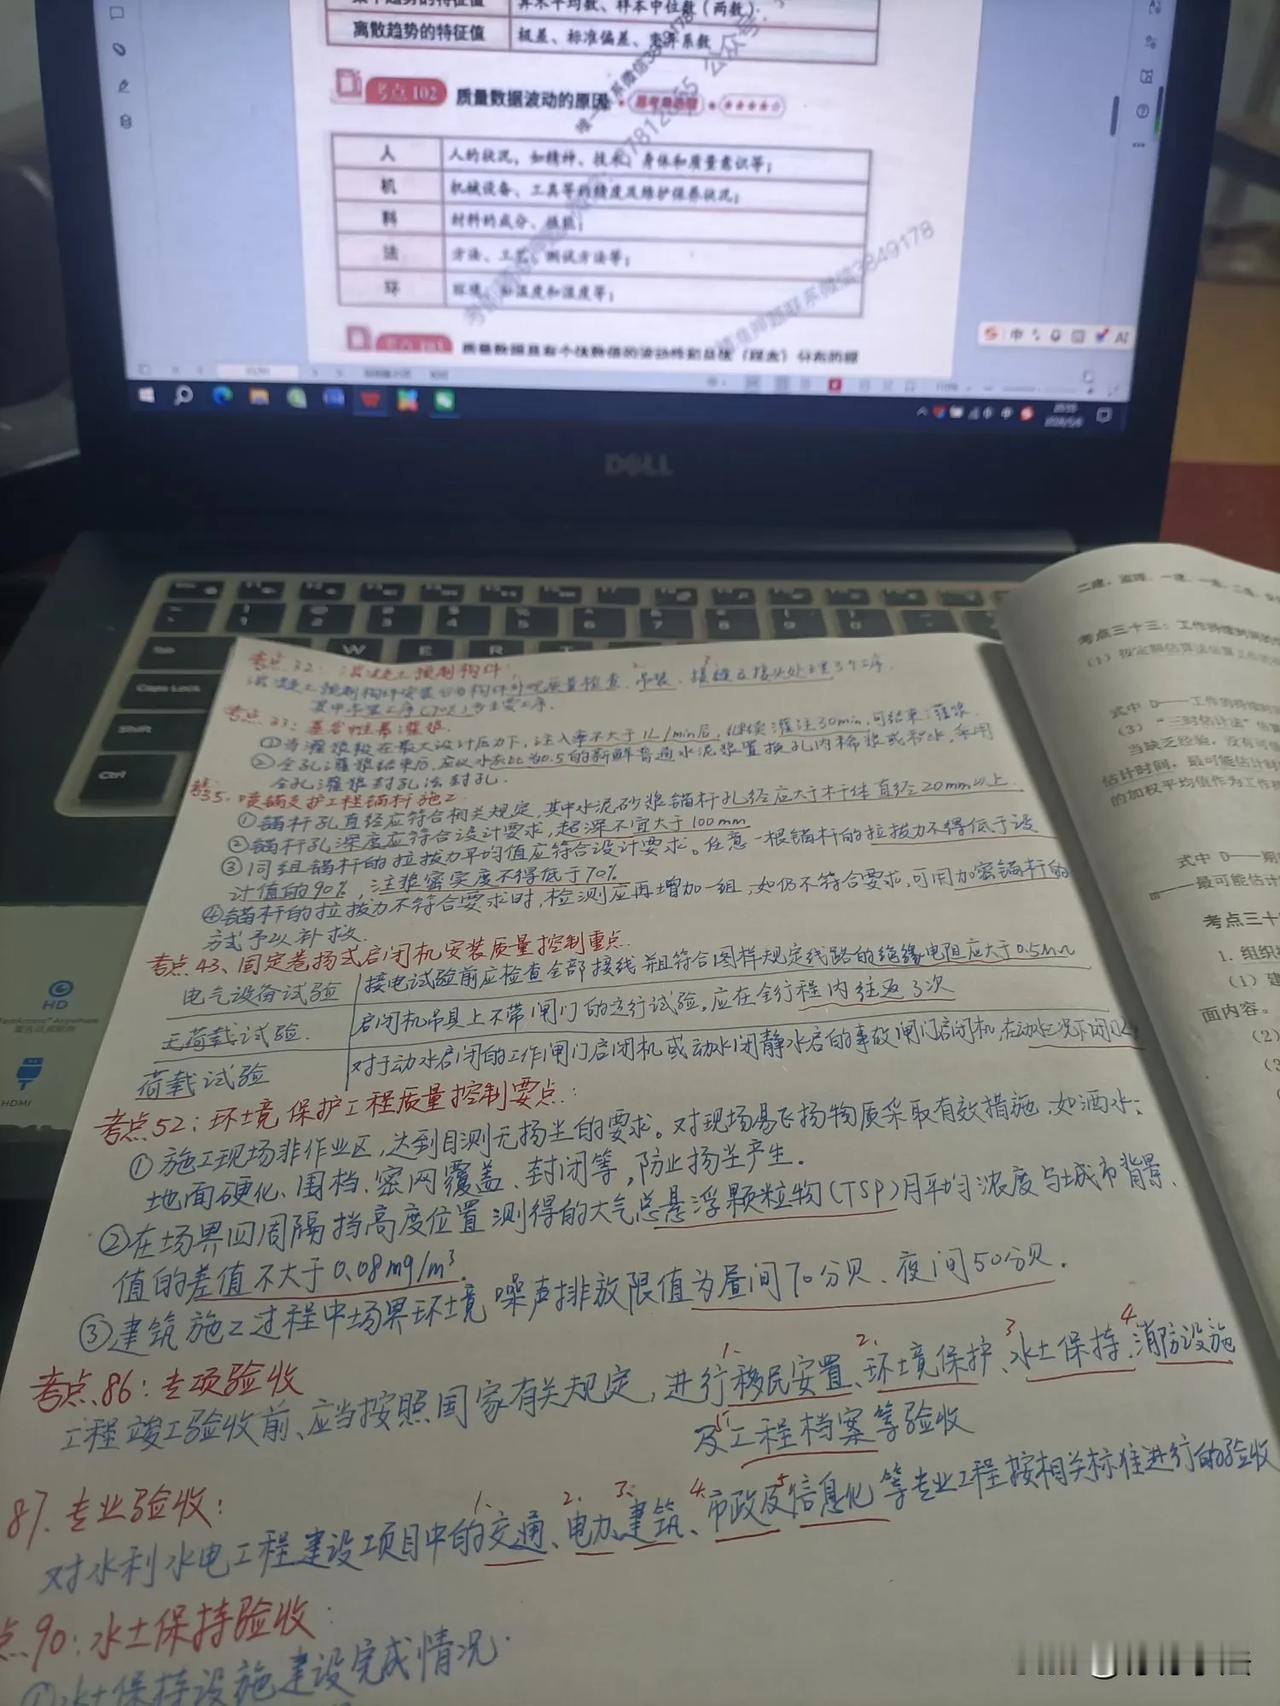 离散趋势的特征值 极差、标准偏差、变异系数
考点 102 质量数据波动的原因
人 人的状况，如精神、技术、身体和质量意识等；
机 机械设备、工具等的精度及维护保养状况；
料 材料的成分、性能；
法 方法、工艺、测试方法等；
环 环境，如温度和湿度等；
DELL
考点三十三：工作持续时间的
（1）按定额估算法估算工作的
式中 D——工作的持续时
（3）“三时估计法”估算
当缺乏经验，没有可信
估计时间，最可能估计时
的加权平均值作为工作持
式中 D——期
m——最可能估计
考点三十
1. 组织
（1）建
面内容。
（2）
考点32：混凝土预制构件：
混凝土预制构件安装分为构件外观质量检查、吊装、接缝及接头处理3个工序，
①当灌浆段在最大设计压力下，注入率不大于1L/min后，继续灌注30min，可结束灌浆.
②全孔灌浆结束后，应以水灰比为0.5的新鲜普通水泥浆置换孔内稀浆或积水，采用
全孔灌浆封孔法封孔.
考35.喷锚支护工程锚杆施工
①锚杆孔直径应符合相关规定，其中水泥砂浆锚杆孔径应大于杆体直径20mm以上
②锚杆孔深度应符合设计要求，超深不宜大于100mm
③同组锚杆的拉拔力平均值应符合设计要求。任意一根锚杆的拉拔力不得低于设
计值的90%，注浆密实度不得低于70%
④锚杆的拉拔力不符合要求时，检测应再增加一组，如仍不符合要求，可用加密锚杆的
方式予以补救.
考点43、固定卷扬式启闭机安装质量控制重点.
电气设备试验 接电试验前应检查全部接线并且符合图样规定线路的绝缘电阻应大于0.5MΩ
无荷载试验. 启闭机吊具上不带闸门的运行试验，应在全行程内往返3次
荷载试验 对于动水启闭的工作闸门启闭机或动水闭静水启的事故闸门启闭机，在动水工况下闭门2次
考点52：环境保护工程质量控制要点：
①施工现场非作业区，达到目测无扬尘的要求。对现场易飞扬物质采取有效措施，如洒水、
地面硬化、围档、密网覆盖、封闭等，防止扬尘产生.
②在场界四周隔挡高度位置测得的大气总悬浮颗粒物(TSP)月平均浓度与城市背景、
值的差值不大于0.08mg/m³.
③建筑施工过程中场界环境噪声排放限值为昼间70分贝、夜间50分贝.
考点.86：专项验收
工程竣工验收前、应当按照国家有关规定，进行移民安置、环境保护、水土保持、消防设施
及工程档案等验收
87.专业验收：
对水利水电工程建设项目中的交通、电力、建筑、市政及信息化等专业工程按相关标准进行的验收
点.90：水土保持验收：
①水土保持设施建设完成情况.